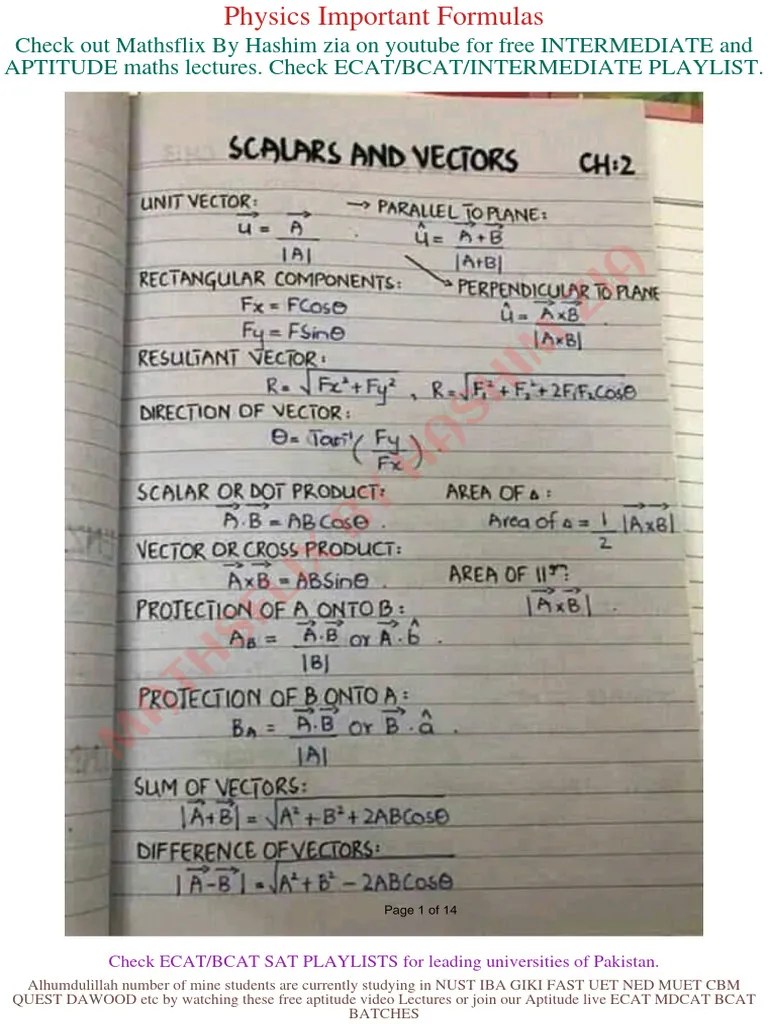 Physics Important Formulas
Check out Mathsflix By Hashim zia on youtube for free INTERMEDIATE and
APTITUDE maths lectures. Check ECAT/BCAT/INTERMEDIATE PLAYLIST.
SCALARS AND VECTORS CH:2
UNIT VECTOR: → PARALLEL TO PLANE:
u⃗ = A⃗ / |A| û = A⃗+B⃗ / |A+B|
RECTANGULAR COMPONENTS: → PERPENDICULAR TO PLANE
Fx = FCosθ û = A⃗xB⃗ / |AxB|
Fy = FSinθ
RESULTANT VECTOR:
R = √Fx²+Fy² , R = √F₁²+F₂²+2F₁F₂Cosθ
DIRECTION OF VECTOR:
θ = Tan⁻¹(Fy/Fx).
SCALAR OR DOT PRODUCT: AREA OF Δ:
A⃗.B⃗ = ABCosθ. Area of Δ = 1/2 |A⃗xB⃗|
VECTOR OR CROSS PRODUCT:
A⃗xB⃗ = ABSinθ. AREA OF ||gm:
PROTECTION OF A ONTO B: |A⃗xB⃗|.
A_B = A⃗.B⃗ / |B| or A⃗.b̂.
PROTECTION OF B ONTO A:
B_A = A⃗.B⃗ / |A| or B⃗.â.
SUM OF VECTORS:
|A⃗+B⃗| = √A²+B²+2ABCosθ
DIFFERENCE OF VECTORS:
|A⃗-B⃗| = √A²+B²-2ABCosθ
MATHSFLIX BY HASHIM ZIA
Page 1 of 14
Check ECAT/BCAT SAT PLAYLISTS for leading universities of Pakistan.
Alhumdulillah number of mine students are currently studying in NUST IBA GIKI FAST UET NED MUET CBM
QUEST DAWOOD etc by watching these free aptitude video Lectures or join our Aptitude live ECAT MDCAT BCAT
BATCHES